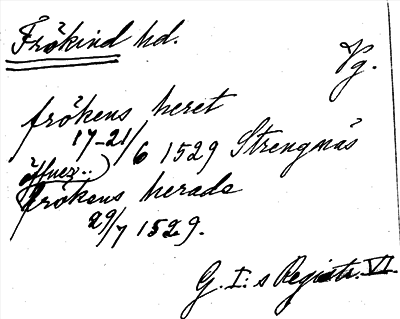 Frökind hd.
Vg.
frökens heret
17-21/6 1529 Strengnäs
öffuer..)
frökens herads
29/7 1529.
G. I:s Registr. VI.